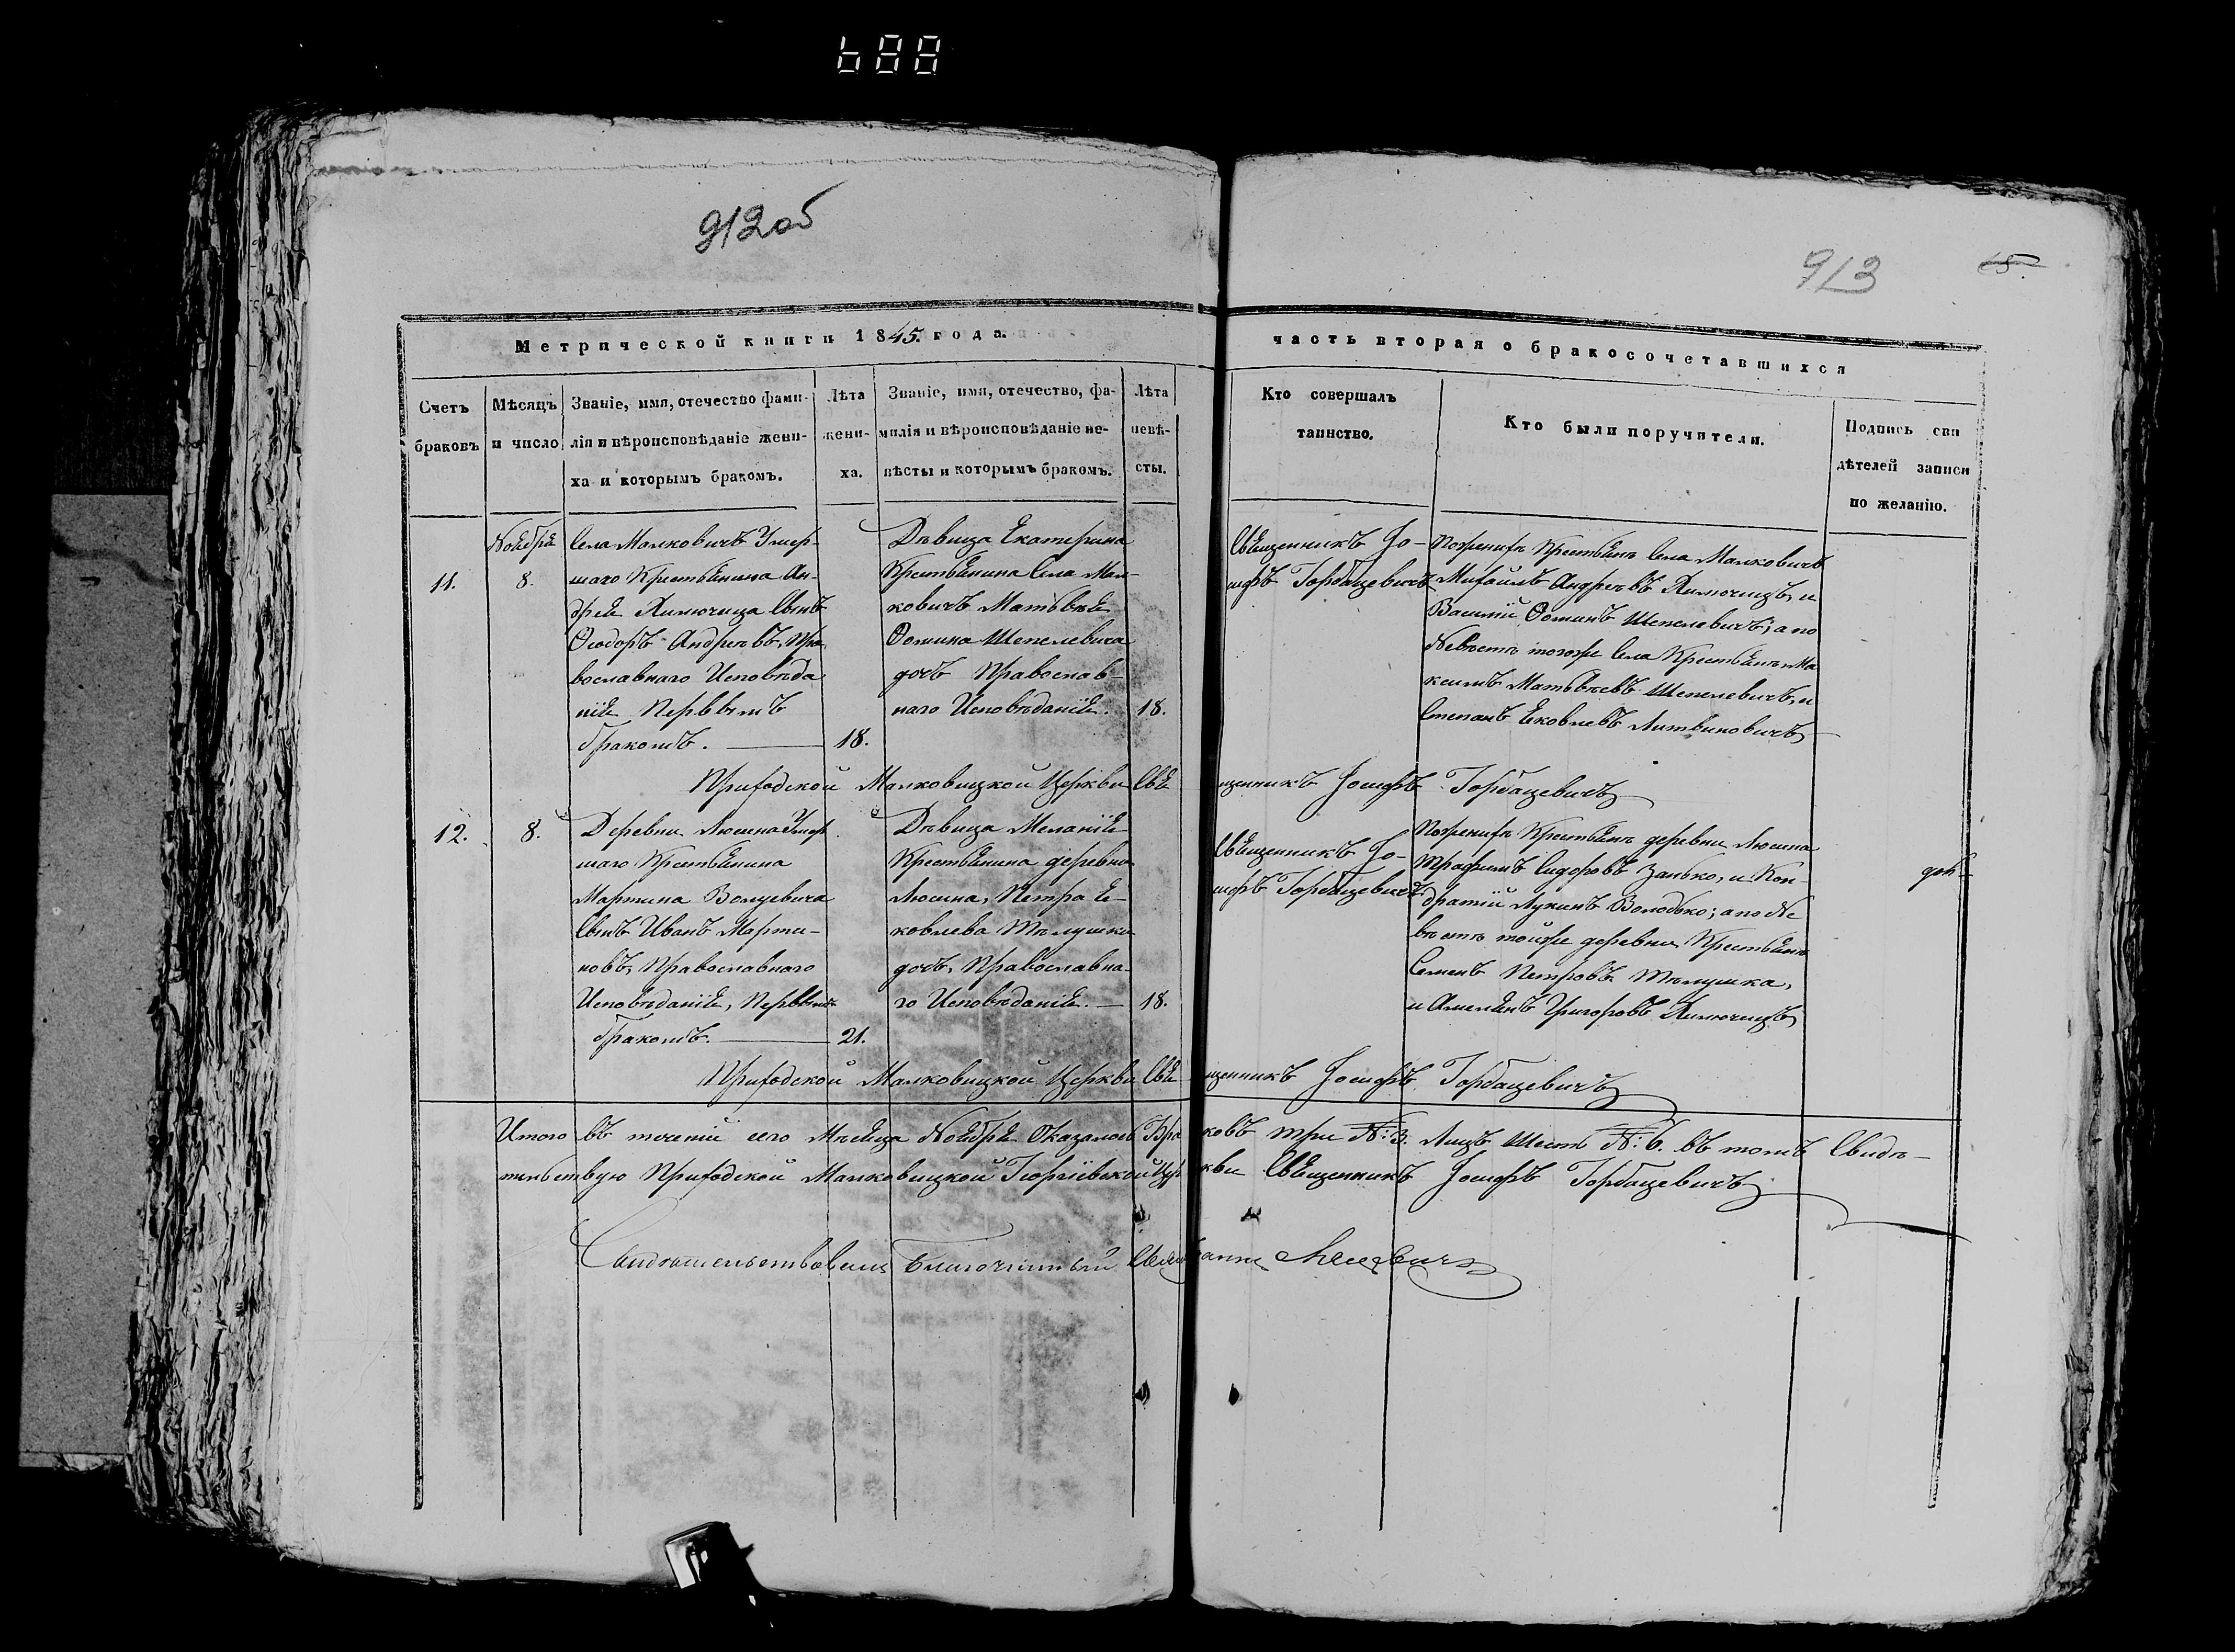 688
912об
913
15.
Метрической книги 1845. года.
часть вторая о бракосочетавшихся
Счетъ браковъ
Мѣсяцъ и число
Званіе, имя, отечество фами-
лія и вѣроисповѣданіе жени-
ха и которымъ бракомъ.
Лѣта
жени-
ха.
Званіе, имя, отечество, фа-
милія и вѣроисповѣданіе не-
вѣсты и которымъ бракомъ.
Лѣта
невѣ-
сты.
Кто совершалъ
таинство.
Кто были поручители.
Подпись сви
дѣтелей записи
по желанію.
11.
Ноября
8.
Села Малковичъ Умер-
шаго Крестьянина Ан-
дрея Климчица Сынъ
Ѳеодоръ Андреевъ, Пра
вославнаго Исповѣда
нія Первымъ
бракомъ.
18.
Дѣвица Екатерина
Крестьянина Села Мал-
ковичъ Матвѣя
Ѳомина Шепелевича
дочь Православ-
наго Исповѣданія.
18.
Священникъ Іо-
сифъ Горбацевичъ
Поженихѣ Крестьяне Села Малковичъ
Михаилъ Андреевъ Климчицъ, и
Василій Ѳоминъ Шепелевичъ; а по
Невѣстѣ тогоже Села Крестьяне Ма
ксимъ Матвѣевъ Шепелевичъ, и
Степанъ Яковлевъ Литвиновичъ
Приходской Малковицкой Церкви Священникъ Іосифъ Горбацевичъ
12.
8.
Деревни Люсина Умер
шаго Крестьянина
Мартина Волчевича
Сынъ Иванъ Марти-
новъ, Православнаго
Исповѣданія, Первымъ
бракомъ.
21.
Дѣвица Меланія
Крестьянина деревни
Люсина, Петра Я-
ковлева Тѣлушки
дочь, Православна-
го Исповѣданія.
18.
Священникъ Іо-
сифъ Горбацевичъ
Поженихѣ Крестьяне деревни Люсина
Трафимъ Сидоровъ Занько, и Кон-
дратій Лукинъ Володько; а по Не
вѣстѣ тойже деревни Крестьяне
Семенъ Петровъ Тѣлушка,
и Амельянъ Григоровъ Климчицъ
Приходской Малковицкой Церкви Священникъ Іосифъ Горбацевичъ
Итого въ теченіи сего Мѣсяца Ноября Оказалось Браковъ три №: 3. Лицъ Шесть №: 6. въ томъ Свидѣ-
тельствую Приходской Малковицкой Георгіевской Церкви Священникъ Іосифъ Горбацевичъ
Свидѣтельствовалъ Благочинный